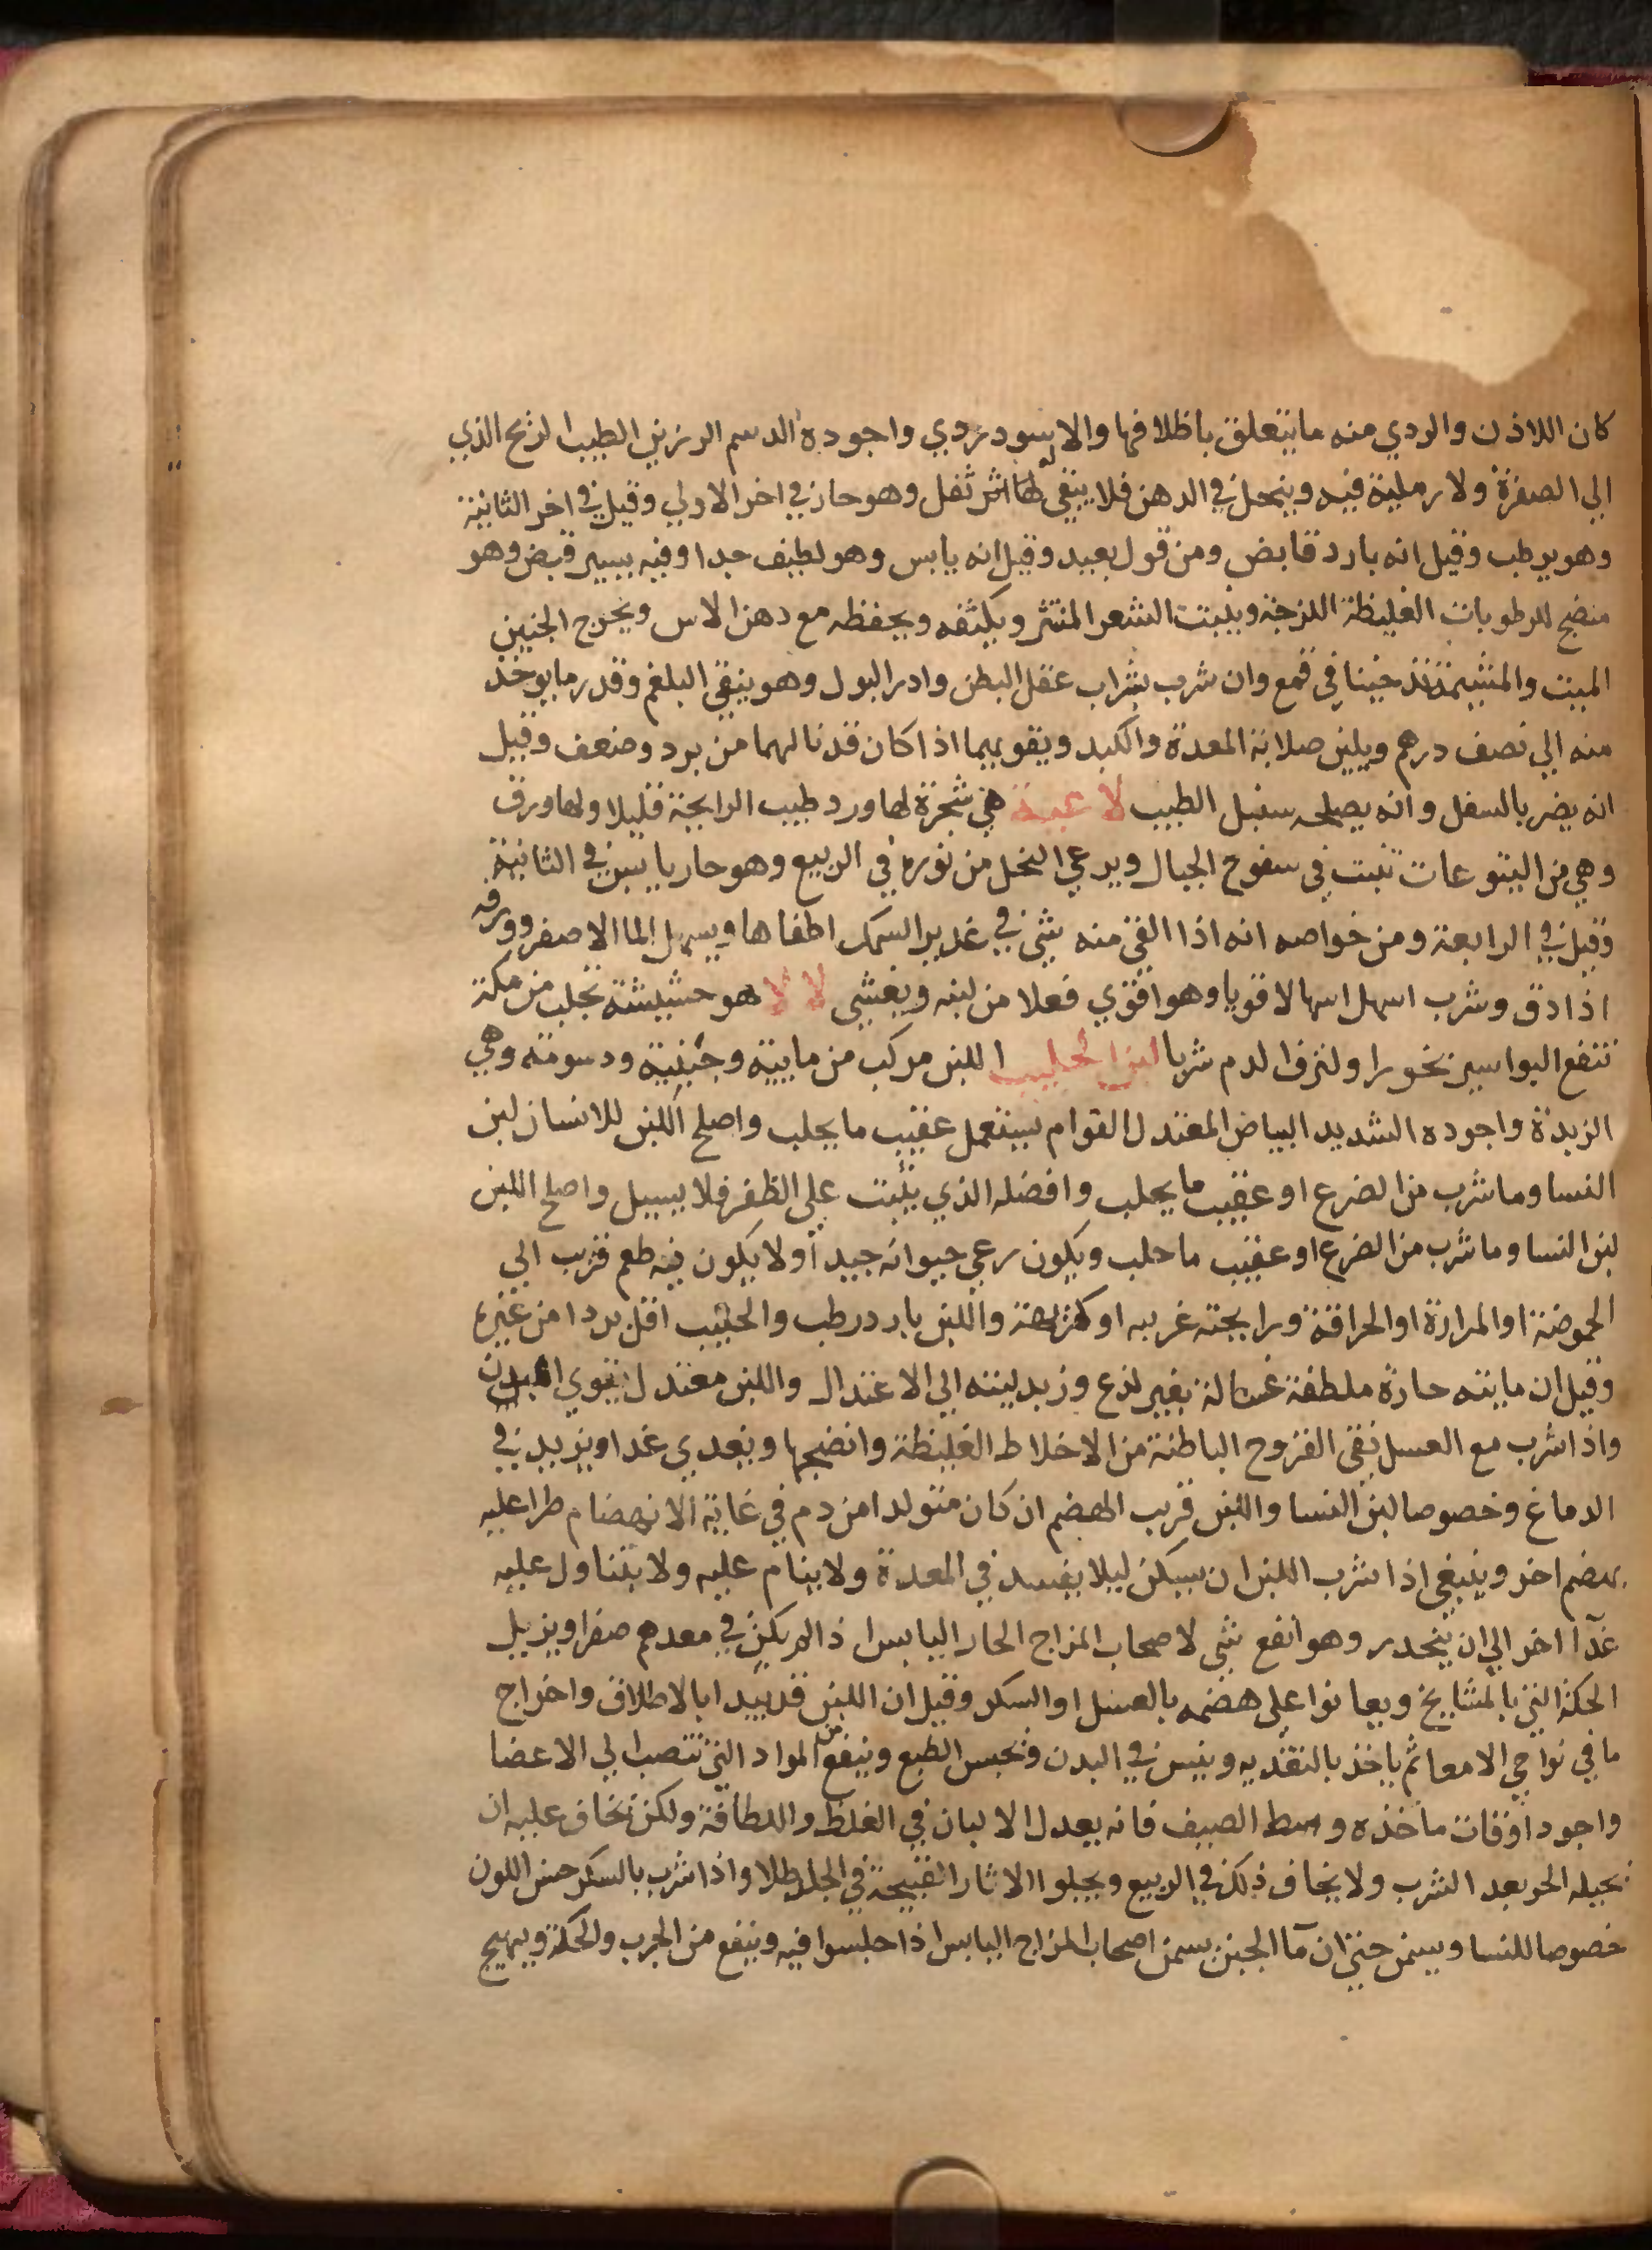 كان اللاذن والردي منه ما يتعلق باظلافها والاسود ردي واجوده الدسم الرزين الطيب الريح الذي
الي الصفرة ولا رملية فيه وينحل في الدهن فلا يبقي له اثر ثفل وهو حار في اخر الاولي وقيل في اخر الثانية
وهو يرطب وقيل انه بارد قابض ومن قول بعيد وقيل انه يابس وهو لطيف جدا وفيه يسير قبض وهو
منضج للرطوبات الغليظة اللزجة وينبت الشعر المنتثر ويكثفه ويحفظه مع دهن الاس ويخرج الجنين
الميت والمشيمة تدخينا في قمع وان شرب بشراب عقل البطن وادر البول وهو ينقي البلغم وقدر ما يوخذ
منه الي نصف درهم ويلين صلابة المعدة والكبد ويقويهما اذا كان قد نالهما من برد وضعف وقيل
انه يضر بالسفل وانه يصلحه سنبل الطيب لاعية هي شجرة لها ورد طيب الرايحة قليلا ولها ورق
وهي من اليتوعات تنبت في سفوح الجبال ويرعي النحل من نوره في الربيع وهو حار يابس في الثانية
وقيل في الرابعة ومن خواصه انه اذا القي منه شي في غدير السمك اطفاها ويسهل الما الاصفر وورقه
اذا دق وشرب اسهل اسهالا قويا وهو اقوي فعلا من لبنه ويغشي لا لا هو حشيشة تجلب من مكة
تنفع البواسير بخورا ولنزف الدم شربا لبن الحليب اللبن مركب من مايية وجبنية ودسومته وهي
الزبدة واجوده الشديد البياض المعتدل القوام يستعمل عقيب ما يحلب واصلح اللبن للانسان لبن
النسا وما شرب من الضرع او عقيب ما يحلب وافضله الذي يثبت علي الظفر فلا يسيل واصلح اللبن
لبن النسا وما شرب من الضرع او عقيب ما حلب ويكون رعي حيوانه جيد أو لا يكون فيه طعم قرب الي
الحموضة او المرارة او الحرافة ورايحته غريبه او كريهة واللبن بارد رطب والحليب اقل بردا من غيره
وقيل ان مايته حارة ملطفة غسالة بغير لذع وزبدليته الي الاعتدال واللبن معتدل يقوي البدن
واذا شرب مع العسل نقي القروح الباطنة من الاخلاط الغليظة وانضجها وبغدي غدا ويزيد في
الدماغ وخصوصا لبن النسا واللبن قريب الهضم ان كان متولدا من دم في غاية الانهضام طرا عليه
هضم اخر وينبغي اذا شرب اللبن ان يسكن ليلا يفسد في المعدة ولا ينام عليه ولا يتناول عليه
غدآ اخر الي ان ينحدر وهو أنفع شي لاصحاب المزاج الحار اليابس اذا لم يكن في معدهم صفرا ويزيل
الحكة التي بالمشايخ ويعانوا علي هضمه بالعسل او السكر وقيل ان اللبن قد يبدا بالاطلاق واخراج
ما في نواحي الامعا ثم ياخذ بالتغديه وينبس في البدن ونحبس الطبع وينفع من المواد التي تنصب الي الاعضا
واجود اوقات ماخذه وسط الصيف فانه يعدل الالبان في الغلظ واللطافة ولكن يخاف عليه ان
يحيله الحر بعد الشرب ولا يخاف ذلك في الربيع ويجلوا الاثار القبيحة في الجلد طلا واذا شرب بالسكر حسن اللون
خصوصا للنسا ويسمن حتي ان مآ الجبن يسمن اصحاب المزاج اليابس اذا جلسوا فيه وينفع من الجرب والحكة ويهيج